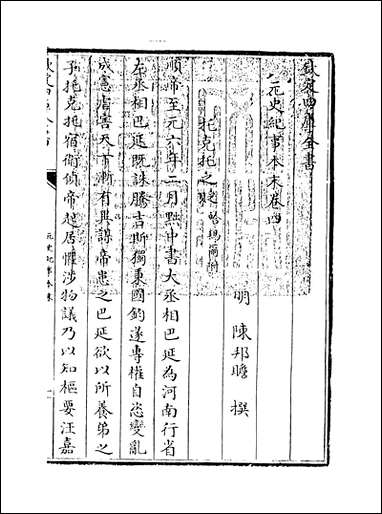 欽定四庫全書
元史紀事本末卷四
明 陳邦瞻 撰
托克托之貶 哈瑪爾附
順帝至元六年二月黜中書大丞相巴延為河南行省
左丞相巴延既誅騰吉斯獨秉國鈞遂專權自恣變亂
成憲虐害天下漸有異謀帝患之巴延欲以所養弟之
子托克托宿衛偵帝起居懼涉物議乃以知樞要汪嘉
元史紀事本末